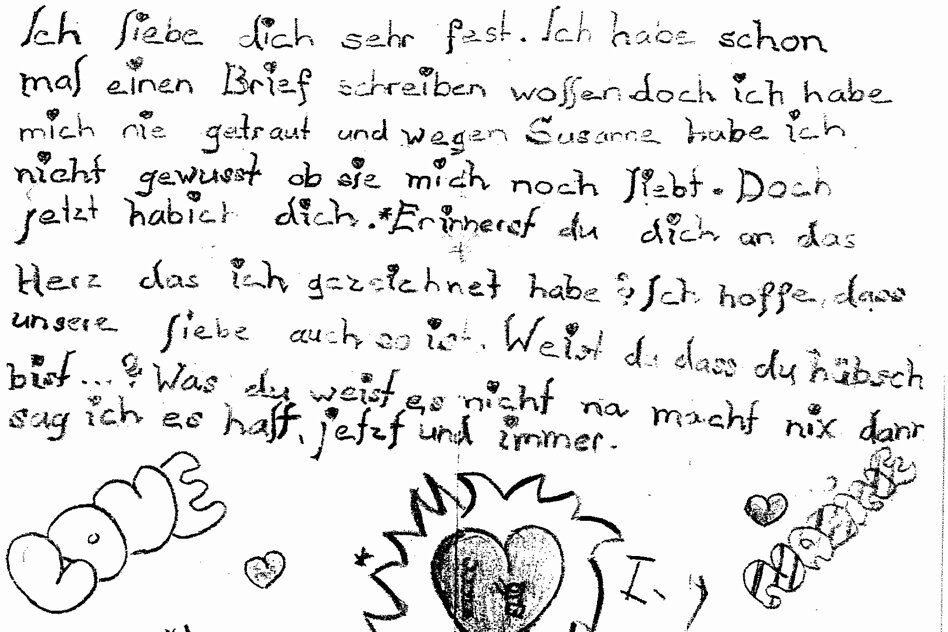 Ich liebe dich sehr fest. Ich habe schon
mal einen Brief schreiben wollen doch ich habe
mich nie getraut und wegen Susanne habe ich
nicht gewusst ob sie mich noch liebt. Doch
jetzt hab ich dich.*Erinnerst du dich an das
Herz das ich gezeichnet habe? Ich hoffe, dass
unsere liebe auch so ist. Weist du dass du hübsch
bist...? Was du weist es nicht na macht nix dann
sag ich es halt, jetzt und immer.
LOVE